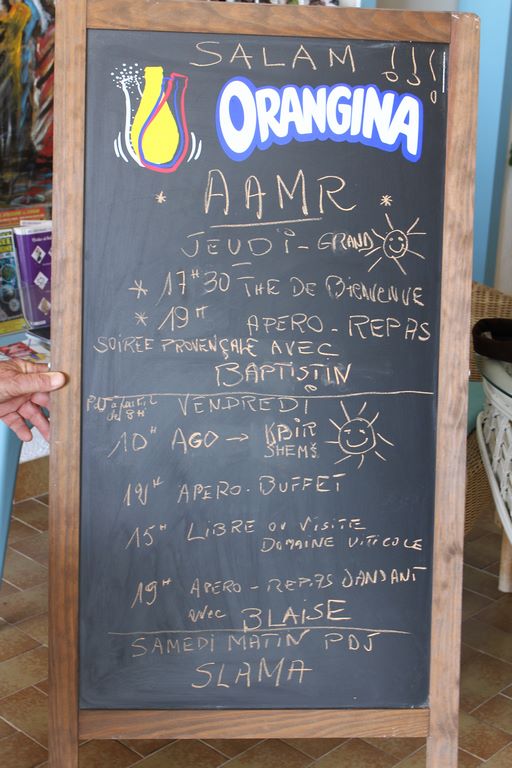 SALAM !!!
ORANGINA
* AAMR *
JEUDI - GRAND
* 17H30 THE DE BIENVENUE
* 19H APERO - REPAS
SOIREE PROVENÇALE AVEC
BAPTISTIN
VENDREDI
10H AGO → KBIR
SHEMS
12H APERO - BUFFET
15H LIBRE OU VISITE
DOMAINE VITICOLE
19H APERO - REPAS DANSANT
avec BLAISE
SAMEDI MATIN PDJ
SLAMA